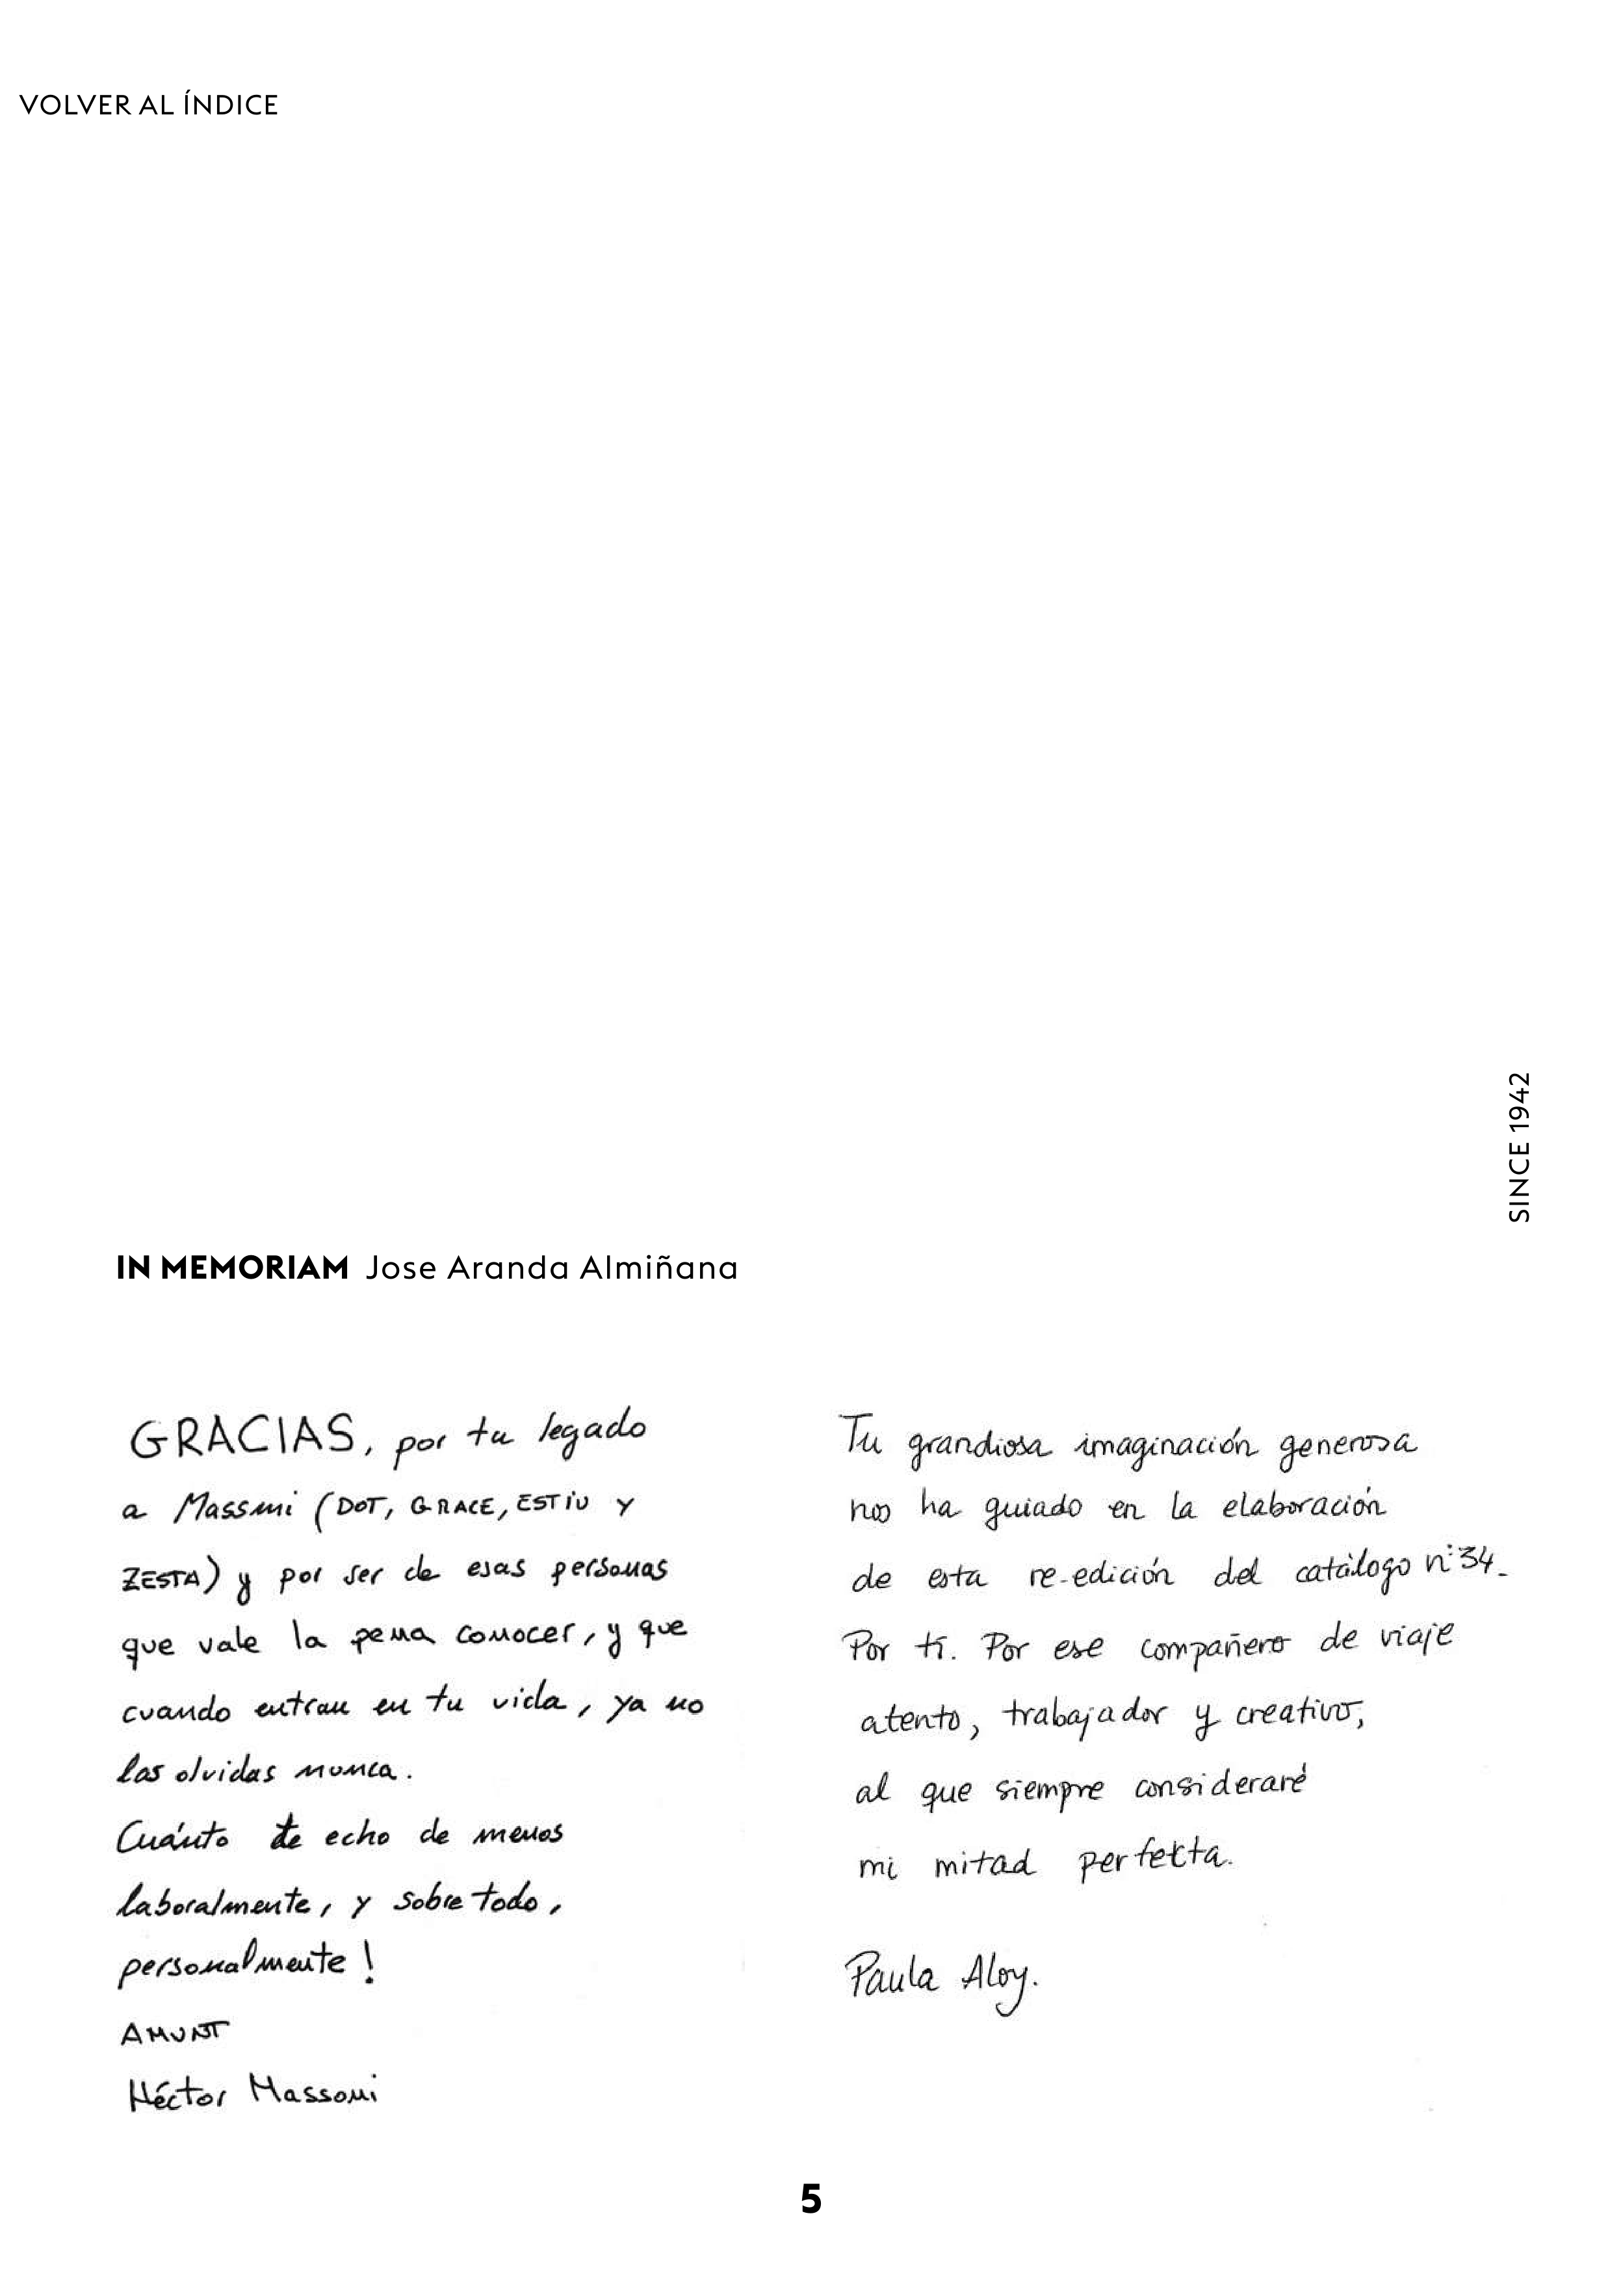 VOLVER AL ÍNDICE
SINCE 1942
IN MEMORIAM Jose Aranda Almiñana
GRACIAS, por tu legado
a Massmi (DOT, GRACE, ESTIU Y
ZESTA) y por ser de esas personas
que vale la pena conocer, y que
cuando entran en tu vida, ya no
las olvidas nunca.
Cuánto te echo de menos
laboralmente, y sobre todo,
personalmente!
AMUNT
Héctor Massoni
Tu grandiosa imaginación generosa
nos ha guiado en la elaboración
de esta re-edición del catálogo nº34.
Por tí. Por ese compañero de viaje
atento, trabajador y creativo,
al que siempre consideraré
mi mitad perfekta.
Paula Aloy.
5